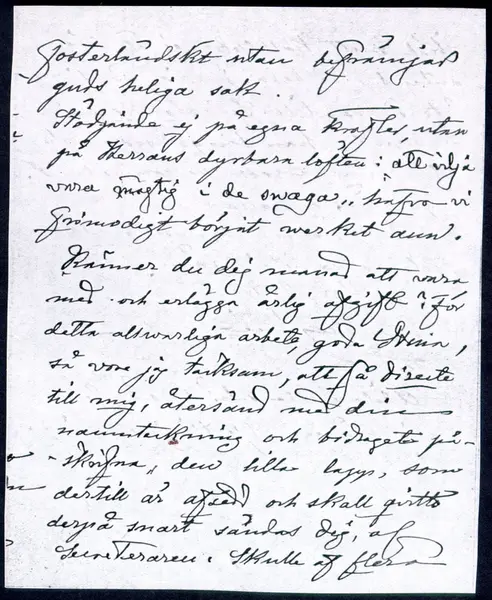 fosterländskt utan befrämjad
guds heliga sak.
Stödjande ej på egna krafter, utan
på Herrans dyrbara löften: att vilja
vara mägtig i de swaga,, hafva vi
frimodigt börjat werket ann.
Känner du dig manad att vara
med och erlägga årlig afgift för
detta allwarliga arbete, goda Stina,
så vore jag tacksam, att få directe
till mig, återsänd med din
namnteckning och bidragets på-
skrifna,, den lilla lapp, som
dertill är afsedd och skall qvitto
derpå snart sändas dig, af
Secreteraren. Skulle af flera